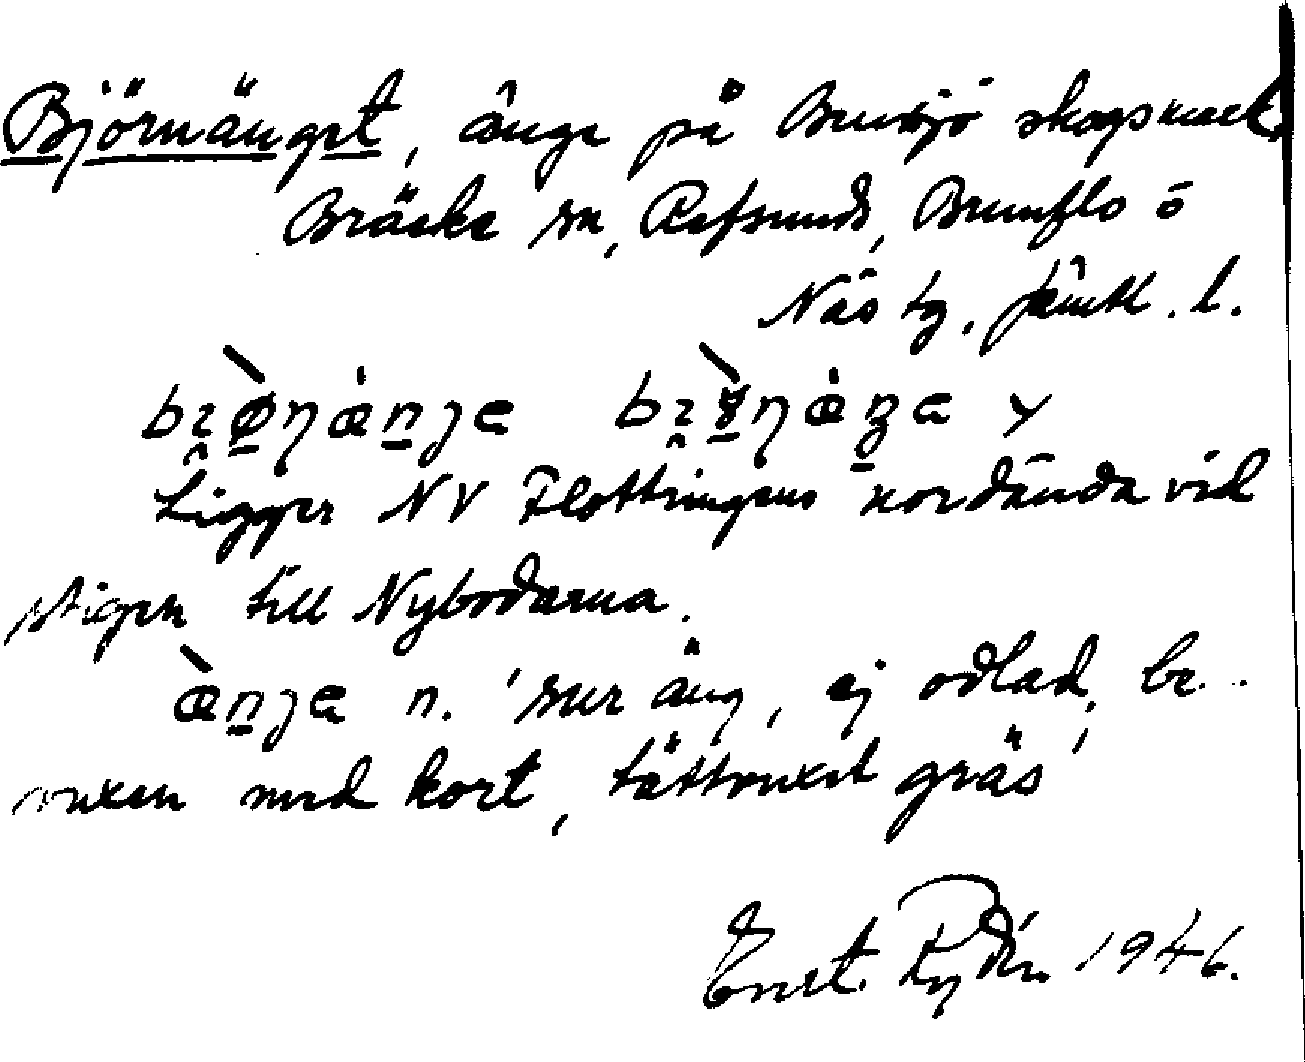 Björnänget, änge på Bensjö skogsmark,
Bräcke sn, Refsunds, Brunflo o
Näs tg. Jämtl. l.
Ligger NV Flottringens nordända vid
stigen till Nybodarna.
n. 'sur äng, ej odlad, be-
vuxen med kort, tättvuxet gräs'
Ernst Rydén 1946.